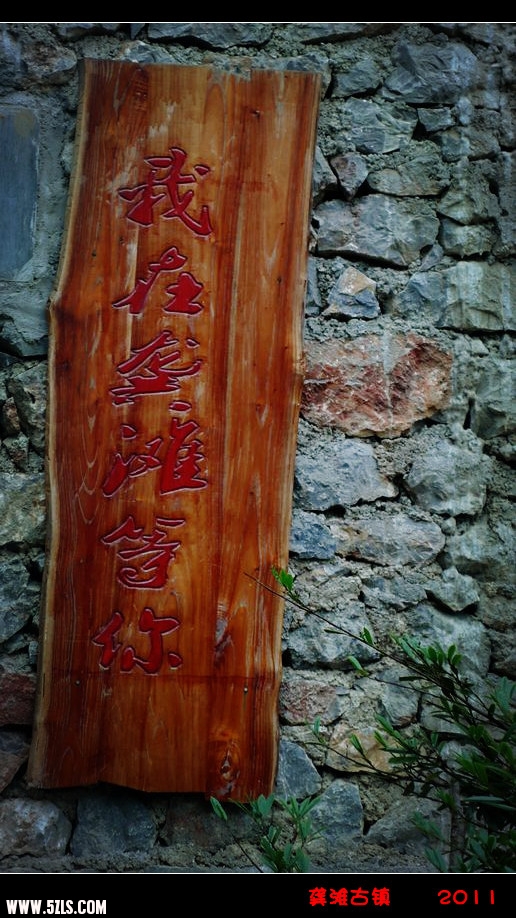 我在龚滩等你
WWW.5ZLS.COM
龚滩古镇 2011